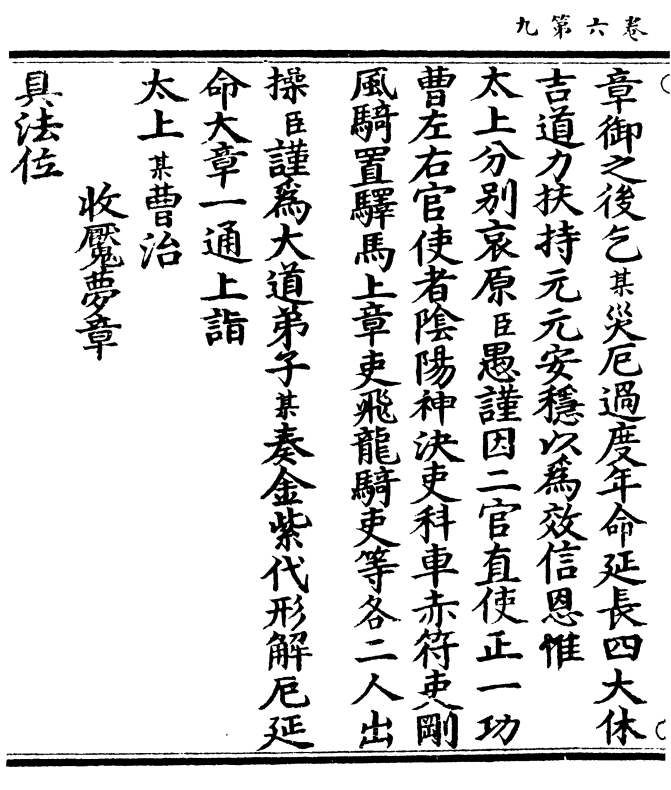 卷六第九
章御之後乞某災厄過度年命延長四大休
吉道力扶持元元安穩以爲效信恩惟
太上分别哀原臣愚謹因二官直使正一功
曹左右官使者陰陽神決吏科車赤符吏剛
風騎置驛馬上章吏飛龍騎吏等各二人出
操臣謹爲大道弟子某奏金紫代形解厄延
命大章一通上詣
太上某曹治
收魘夢章
具法位